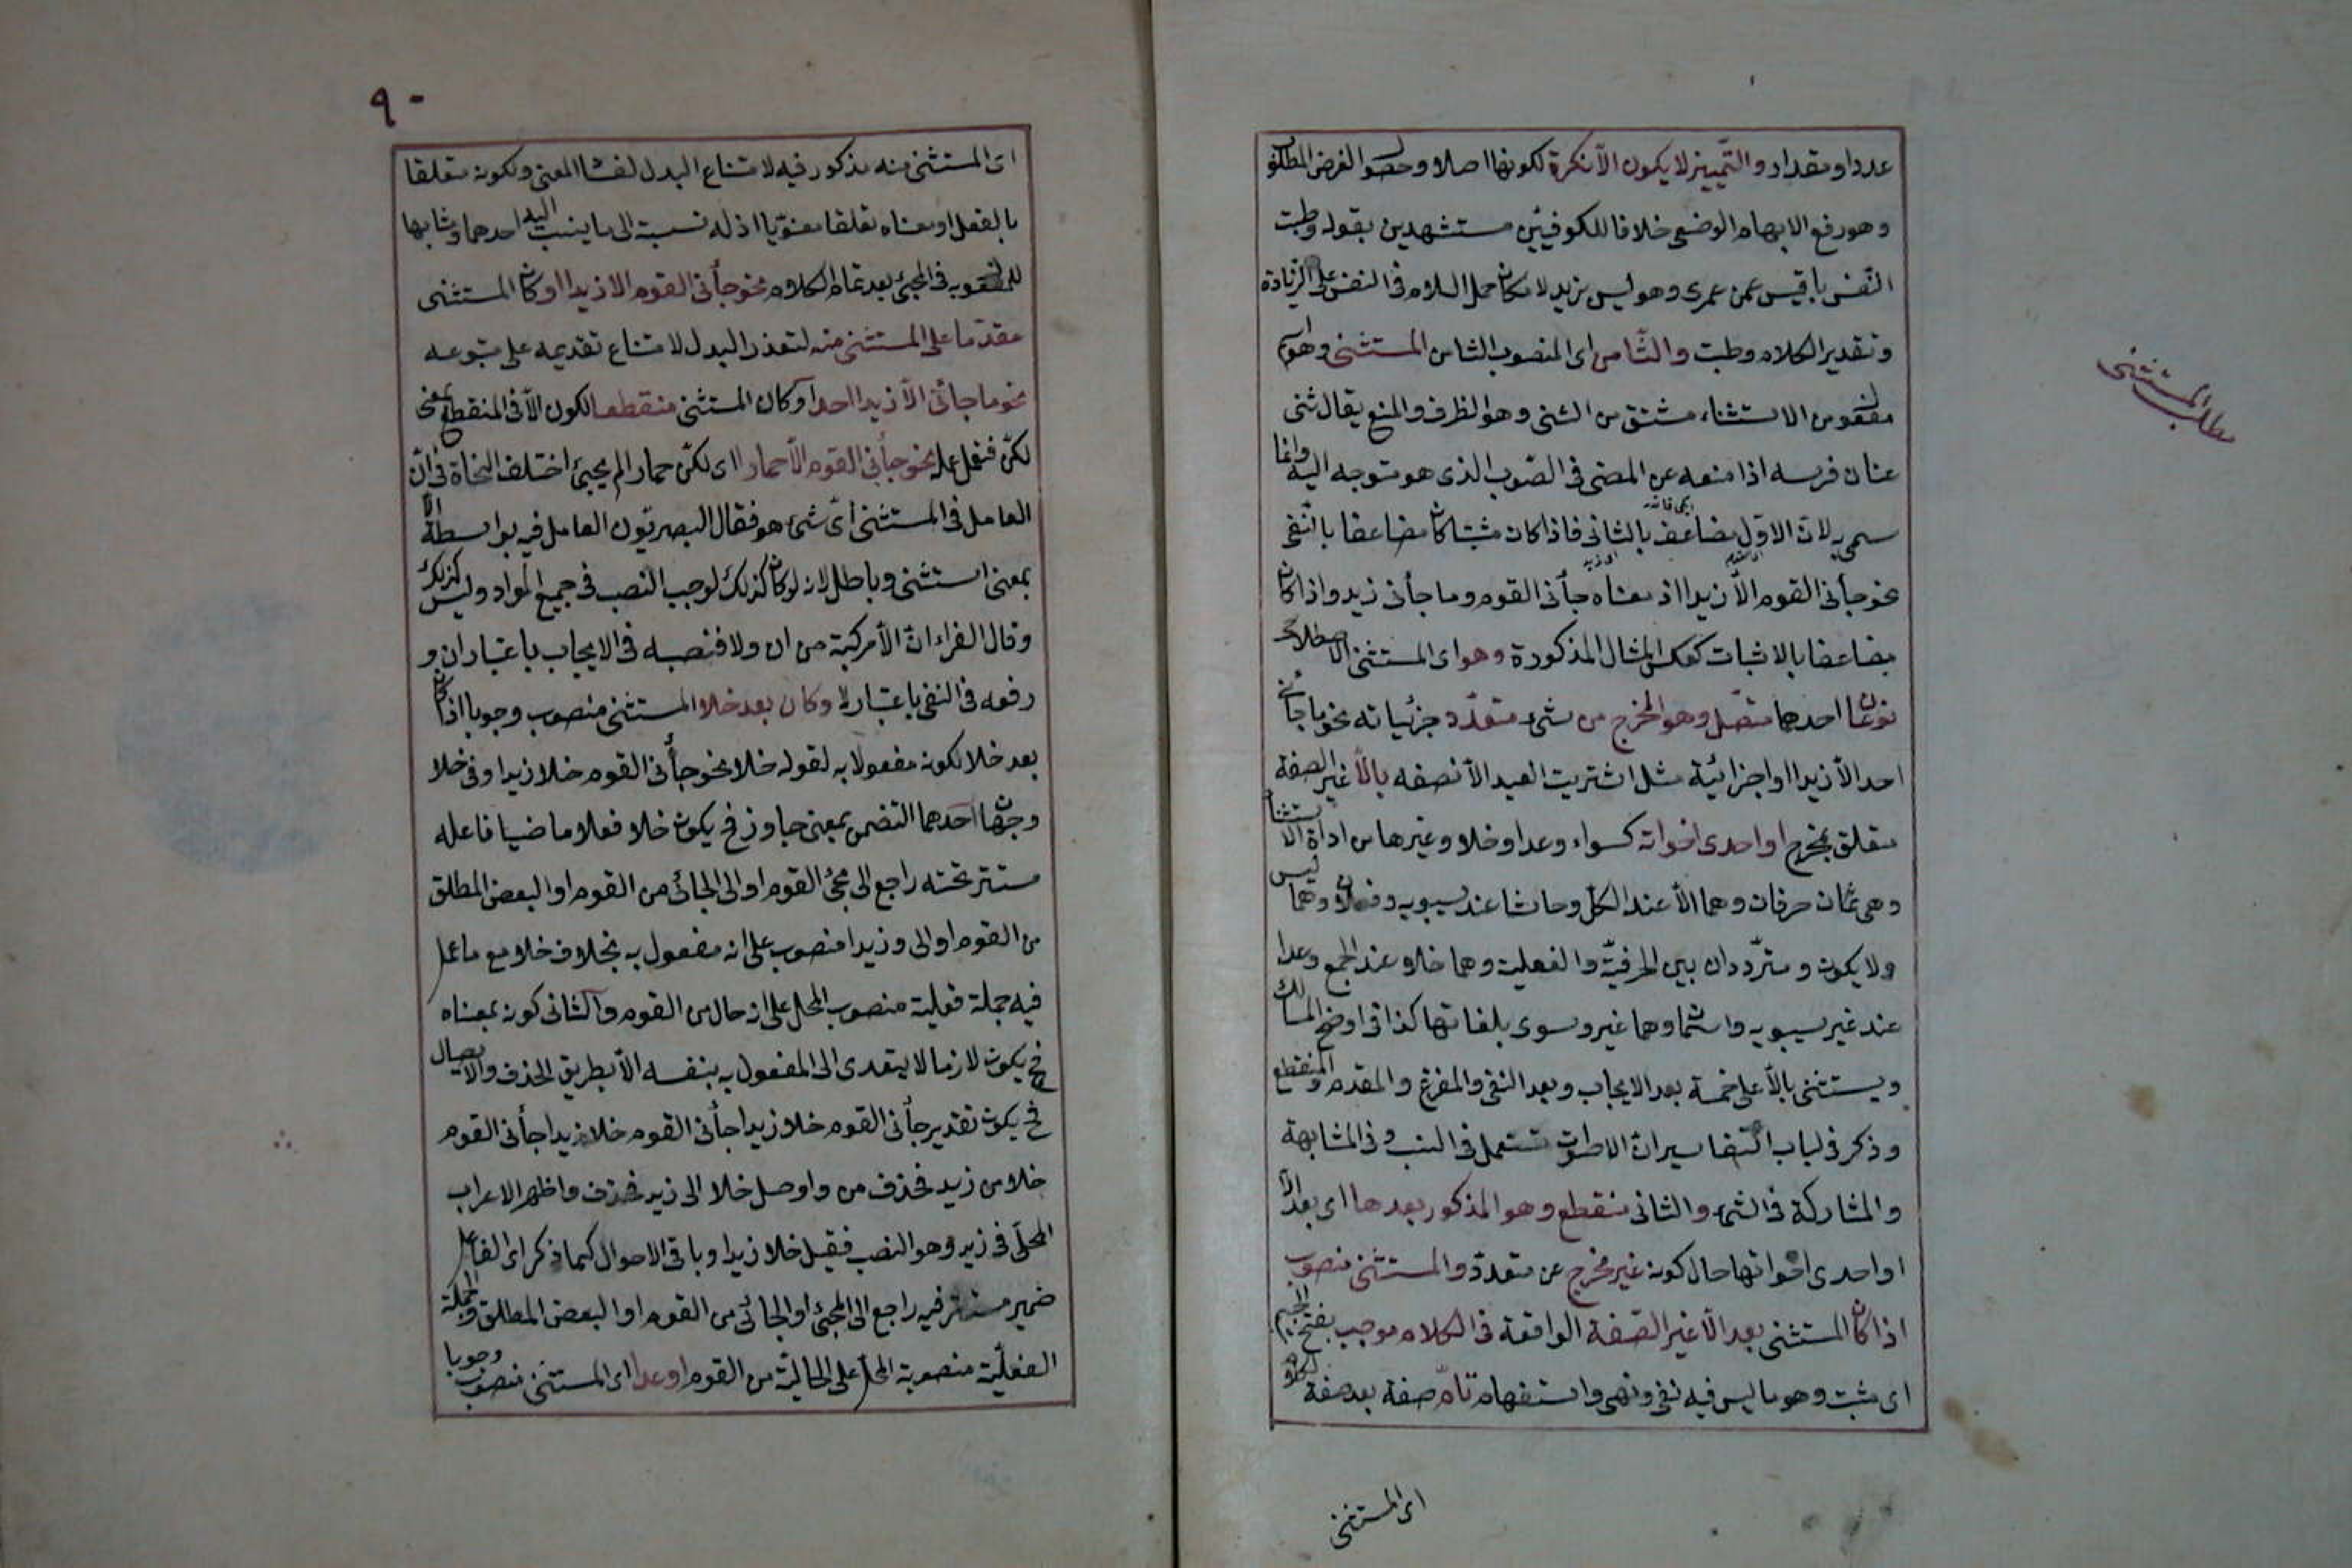 عددا و مقدار و التّمييز لا يكون الّا نكرة لكونها اصلا و حصول الغرض المطلق
و هو رفع الابهام الوضعى خلافا للكوفيّين مستشهدين بقوله و طبت
النّفس يا قيس عن عمرى و هو ليس بزيد لامكان حمل اللام فى النفس على الزيادة
و تقدير الكلام و طبت و الثّامن اى المنصوب الثامن المستثنى و هو اسم
مفعول من الاستثناء مشتق من الثنى و هو الظرف و المنع يقال ثنى
عنان فرسه اذا منعه عن المضى فى الصّوب الذى هو متوجه اليه و انما
سمى به لان الاوّل مضاعف بالثانى فاذا كان مثبتا كان مضاعفا بالنّفى
نحو جأنى القوم الّا زيدا اذ معناه جأنى القوم و ما جأنى زيد و اذا كان
مضاعفا بالاثبات كعكس المثال المذكورة و هو اى المستثنى الاصطلاحى
نوعان احدهما متصل و هو المخرج من شىء متعدّد جزئياته نحو ما جأنى
احد الّا زيدا او اجزائية مثل اشتريت العبد الّا نصفه بالّا غير الصفة
متعلق بمخرج او احدى اخواته كسواء و عدا و خلا و غيرها من اداة الاستثناء
و هى ثمان حرفان و هما الّا عند الكل و حاشا عند سيبويه و فعلان و هما ليس
و لا يكون و متردّدان بين الحرفيّة و الفعلية و هما خلا عند الجمع و عدا
عند غير سيبويه و اسمان و هما غير و سوى بلغاتها كذا فى اوضح المسالك
و يستثنى بالّا على خمسة بعد الايجاب و بعد النفى و المفرغ و المقدم و المنقطع
و ذكر فى لباب التفاسير ان تستعمل فى النسب و فى المشابهة
و المشاركة فى الشىء و الثانى منقطع و هو المذكور بعدها اى بعد الّا
او احدى اخواتها حال كونه غير مخرج عن متعدد و المستثنى منصوب
اذا كان المستثنى بعد الّا غير الصّفة الواقعة فى الكلام موجب بفتح الجيم
اى مثبت و هو ما ليس فيه نفى و نهى و استفهام تامّ صفة بعد صفة لكلام
اى المستثنى
مطلب المستثنى
٩٠
اى المستثنى منه مذكور فيه لامتناع البدل لفساد المعنى و لكونه متعلقا
بالفعل او معناه تعلقا معنويّا اذ له نسبة الى ما ينسب اليه احدهما و شابها
للمفعول به فى المجئ بعد تمام الكلام نحو جأنى القوم الا زيدا او كان المستثنى
مقدّما على المستثنى منه لتعذر البدل لامتناع تقديمه على متبوعه
نحو ما جائنى الّا زيدا احد او كان المستثنى منقطعا لكون الّا فى المنقطع بمعنى
لكنّ فتعمل عمله نحو جأنى القوم الّا حمارا اى لكنّ حمارا لم يجئ اختلف النحاة فى انّ
العامل فى المستثنى اىّ شىء هو فقال البصريّون العامل فيه بواسطة الّا
بمعنى استثنى و باطل لانه لو كان كذلك لوجب النصب فى جميع المواد و ليس كذلك
و قال الفراء انّ الّا مركبة من ان و لا فنصبه فى الايجاب باعتبار ان و
رفعه فى النفى باعتبار لا و كان بعد خلا المستثنى منصوب وجوبا اذا كان
بعد خلا لكونه مفعولا به لقوله خلا نحو جأنى القوم خلا زيدا و فى خلا
وجهان احدهما التضمن بمعنى جاوز فح يكون خلا فعلا ماضيا فاعله
مستتر تحته راجع الى مجئ القوم او الى الجائى من القوم او البعض المطلق
من القوم او الى و زيدا منصوب على انه مفعول به بخلاف خلا مع ما عمل
فيه جملة فعلية منصوب المحل على انه حال من القوم و الثانى كونه بمعناه
فح يكون لازما لا يتعدى الى المفعول به بنفسه الّا بطريق الحذف و الايصال
فح يكون تقدير جأنى القوم خلا زيدا جأنى القوم خلا زيدا جأنى القوم
خلا من زيد فحذف من و اوصل خلا الى زيد فحذف و اظهر الاعراب
المحلّى فى زيد و هو النصب فقيل خلا زيدا و باقى الاحوال كما ذكر اى الفاعل
ضمير مستتر فيه راجع الى المجئ او الجائى من القوم او البعض المطلق و الجملة
الفعليّة منصوبة المحل على الحاليّة من القوم او عدا اى المستثنى منصوب وجوبا